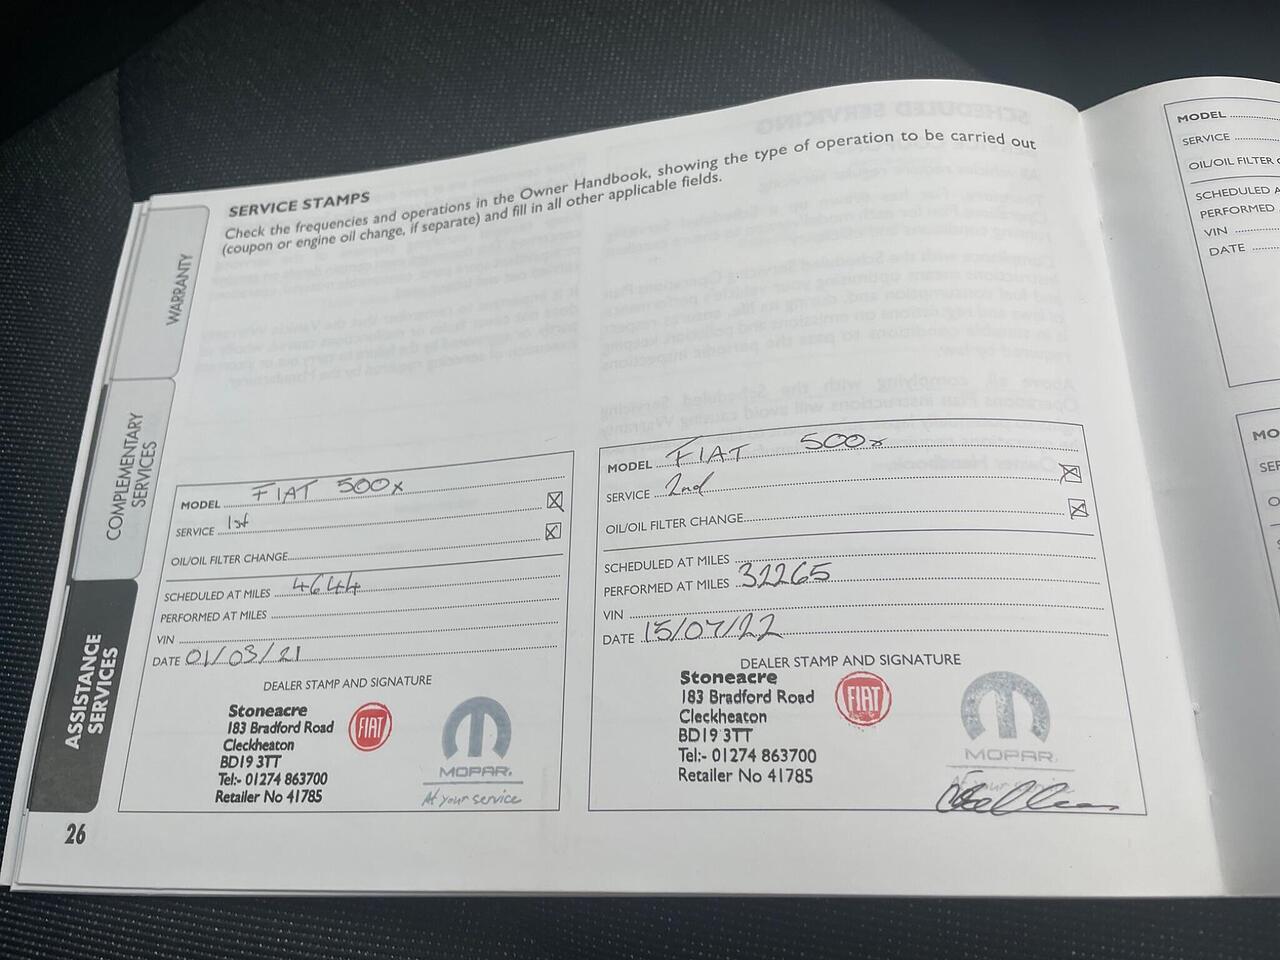 SERVICE STAMPS
Check the frequencies and operations in the Owner Handbook, showing the type of operation to be carried out
(coupon or engine oil change, if separate) and fill in all other applicable fields.
WARRANTY
COMPLEMENTARY
SERVICES
ASSISTANCE
SERVICES
MODEL FIAT 500x
SERVICE 1st
OIL/OIL FILTER CHANGE
SCHEDULED AT MILES 4644
PERFORMED AT MILES
VIN
DATE 01/03/21
DEALER STAMP AND SIGNATURE
Stoneacre
183 Bradford Road
Cleckheaton
BD19 3TT
Tel:- 01274 863700
Retailer No 41785
FIAT
MOPAR
At your service
MODEL FIAT 500x
SERVICE 2nd
OIL/OIL FILTER CHANGE
SCHEDULED AT MILES
PERFORMED AT MILES 32265
VIN
DATE 15/07/22
DEALER STAMP AND SIGNATURE
Stoneacre
183 Bradford Road
Cleckheaton
BD19 3TT
Tel:- 01274 863700
Retailer No 41785
FIAT
MOPAR
At your service
26
MODEL
SERVICE
OIL/OIL FILTER
SCHEDULED A
PERFORMED
VIN
DATE
MO
SER